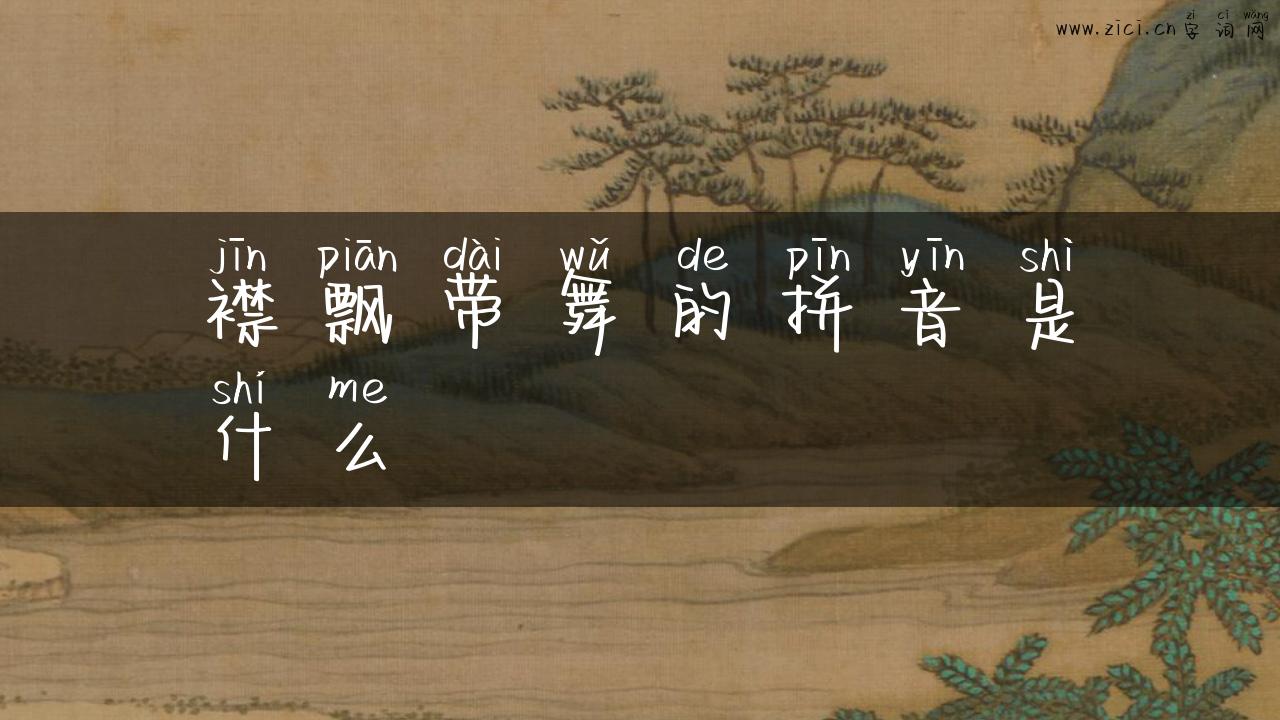 zì cí wǎng
www.zici.cn 字 词 网
jīn piān dài wǔ de pīn yīn shì
襟 飘 带 舞 的 拼 音 是
shí me
什 么